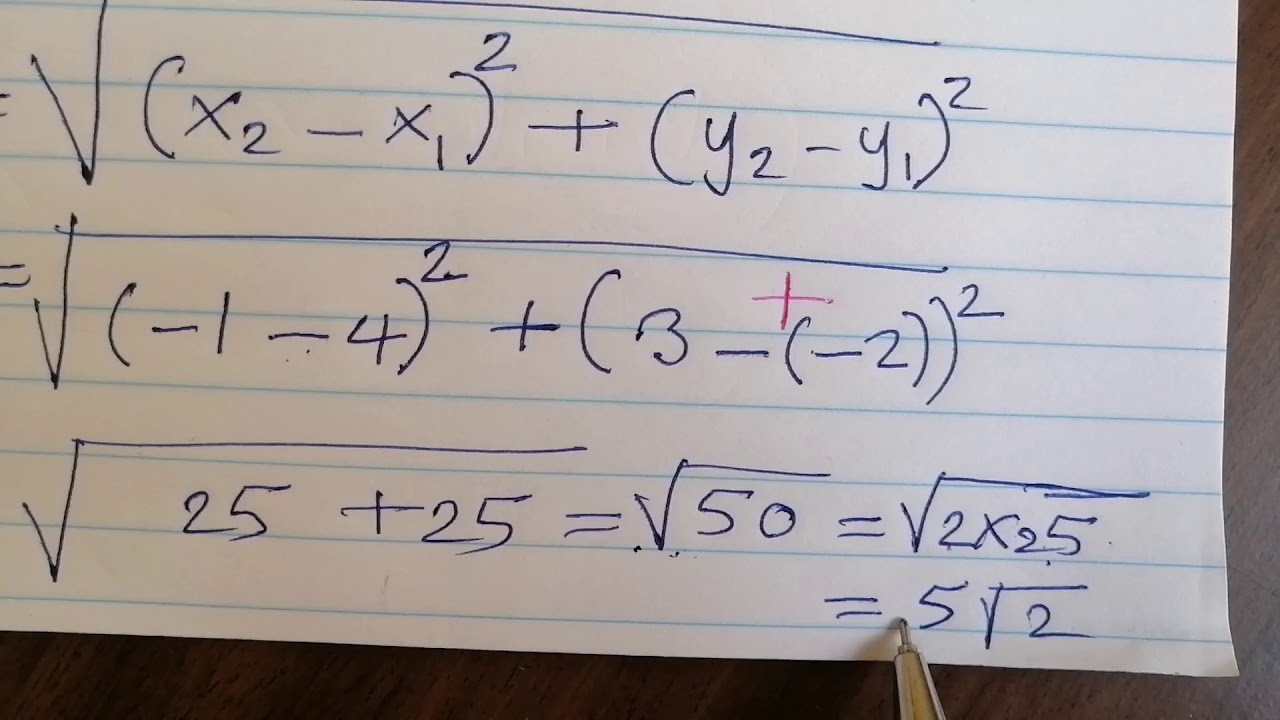 = √(x₂ − x₁)² + (y₂ − y₁)²
= √(−1 − 4)² + (3 −(−2))²
+
√25 + 25 = √50 = √2×25
= 5√2